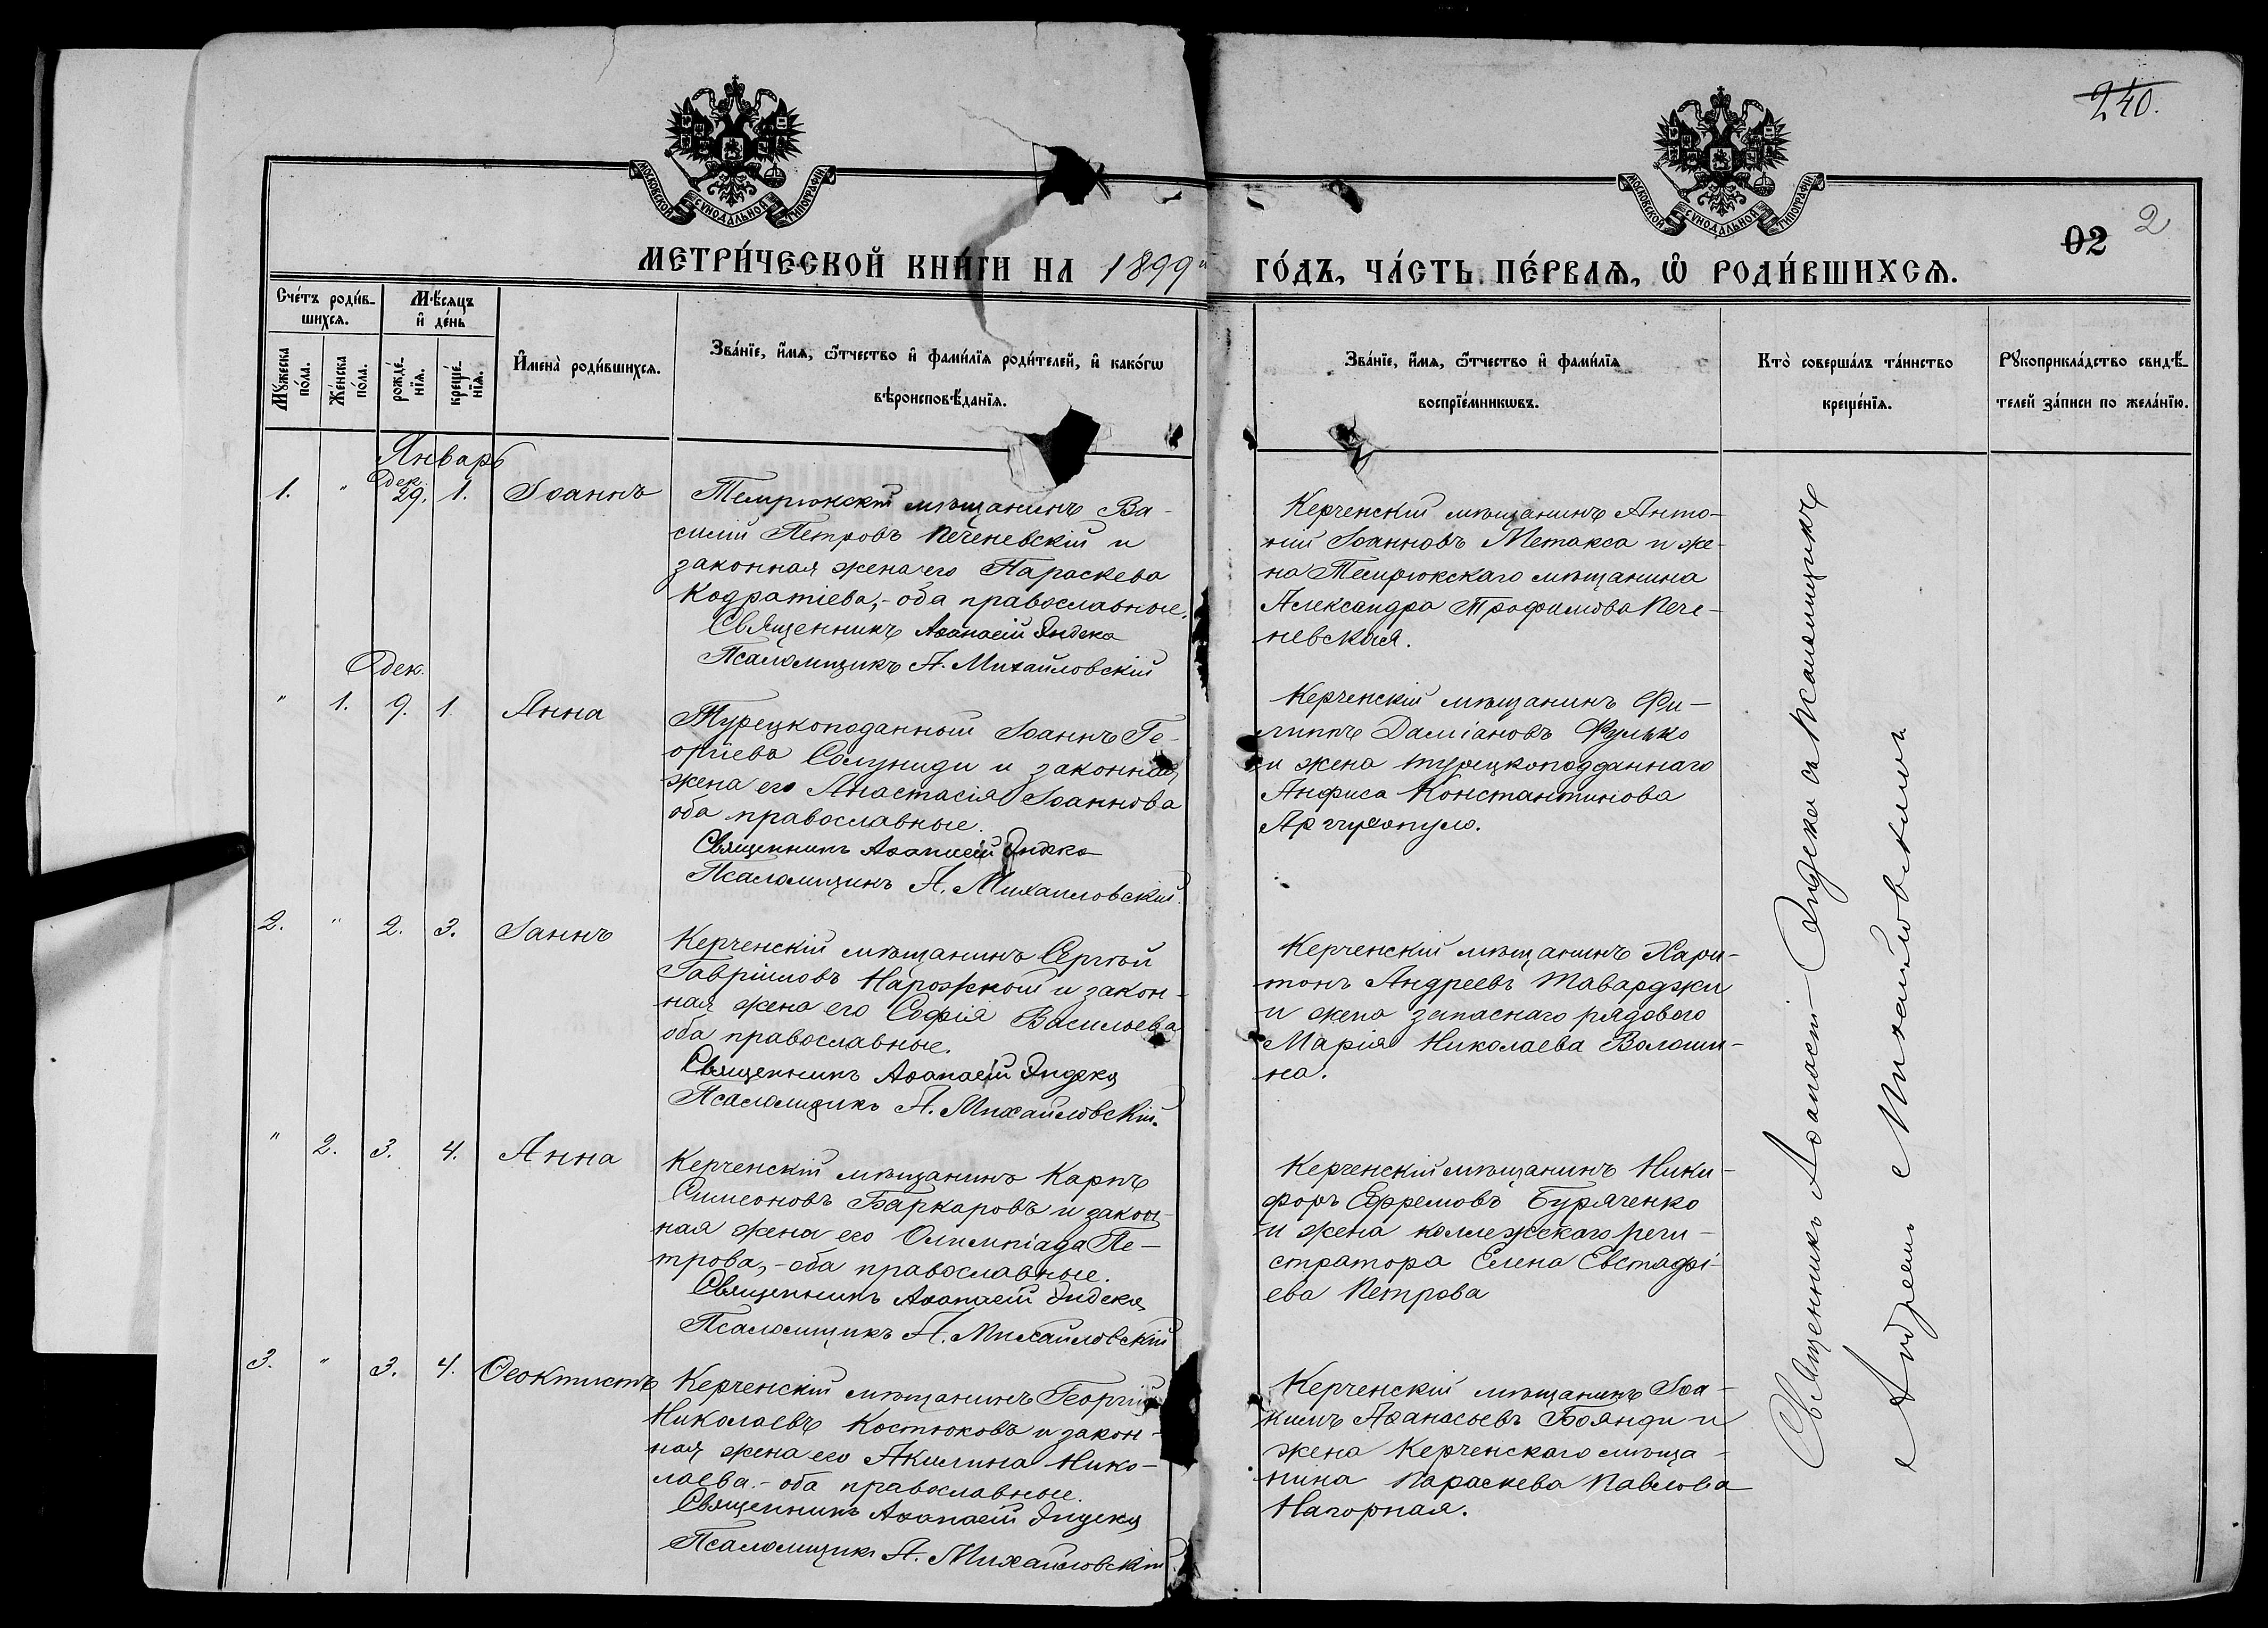 240.
МОСКОВСКОЙ СѴНОДАЛЬНОЙ ТИПОГРАФІИ
МОСКОВСКОЙ СѴНОДАЛЬНОЙ ТИПОГРАФІИ
02 2
МЕТРИ́ЧЕСКОЙ КНИ́ГИ НА 1899й ГО́ДЪ, ЧА́СТЬ ПЕ́РВАѦ, Ѡ҆ РОДИ́ВШИХСѦ.
Сче́тъ роди́в-
шихсѧ.
Мѣ́сяцъ
и҆ де́нь
Мꙋ́жеска
по́ла.
Же́нска
по́ла.
рожде́-
нїѧ.
креще́-
нїѧ.
И҆мена̀ роди́вшихсѧ.
Зва́нїе, и҆́мѧ, ѻ҆́тчество и҆ фами́лїѧ роди́телей, и҆ како́гѡ
вѣроисповѣ́данїѧ.
Зва́нїе, и҆́мѧ, ѻ҆́тчество и҆ фами́лїѧ
воспрїе́мникѡвъ.
Кто̀ соверша́лъ та́инство
креще́нїѧ.
Рꙋкоприкла́дство свидѣ́-
телей за́писи по жела́нїю.
Январь
Дек.
1. " 29. 1. Іоаннъ
Темрюкскій мѣщанинъ Ва-
силій Петровъ Печеневскій и
законная жена его Параскева
Кодратіева,- оба православные.
Священникъ Аѳанасій Индека
Псаломщикъ А. Михайловскій
Керченскій мѣщанинъ Анто-
ній Іоанновъ Метакса и же-
на Темрюкскаго мѣщанина
Александра Трофимова Пече-
невская.
Дек.
" 1. 9. 1. Анна
Турецкоподанный Іоаннъ Ге-
оргіевъ Солуниди и законная
жена его Анастасія Іоаннова
оба православные.
Священникъ Аѳанасій Индека
Псаломщикъ А. Михайловскій.
Керченскій мѣщанинъ Фи-
липпъ Даміановъ Фулько
и жена турецкоподданнаго
Анфиса Константинова
Аргиропуло.
2. " 2. 3. Іаннъ
Керченскій мѣщанинъ Сергѣй
Гавріиловъ Нарожный и закон-
ная жена его Софія Васильева
оба православные.
Священникъ Аѳанасій Индека
Псаломщикъ А. Михайловскій.
Керченскій мѣщанинъ Хари-
тонъ Андреевъ Таварджи
и жена запаснаго рядового
Марія Николаева Волоши-
на.
" 2. 3. 4. Анна
Керченскій мѣщанинъ Карпъ
Симеоновъ Баркаровъ и закон-
ная жена его Олимпіада Пе-
трова,- оба православные.
Священникъ Аѳанасій Индека
Псаломщикъ А. Михайловскій
Керченскій мѣщанинъ Ники-
форъ Ефремовъ Буряченко
и жена коллежскаго реги-
стратора Елена Евстафі-
ева Петрова
3. " 3. 4. Ѳеоктистъ
Керченскій мѣщанинъ Георгій
Николаевъ Костюковъ и закон-
ная жена его Акилина Нико-
лаева.- оба православные.
Священникъ Аѳанасій Индека
Псаломщикъ А. Михайловскій.
Керченскій мѣщанинъ Іоа-
кимъ Аѳанасьевъ Боянди и
жена Керченскаго мѣща-
нина Параскева Павлова
Нагорная.
Священникъ Аѳанасій Индека съ псаломщикомъ
Андреемъ Михайловскимъ